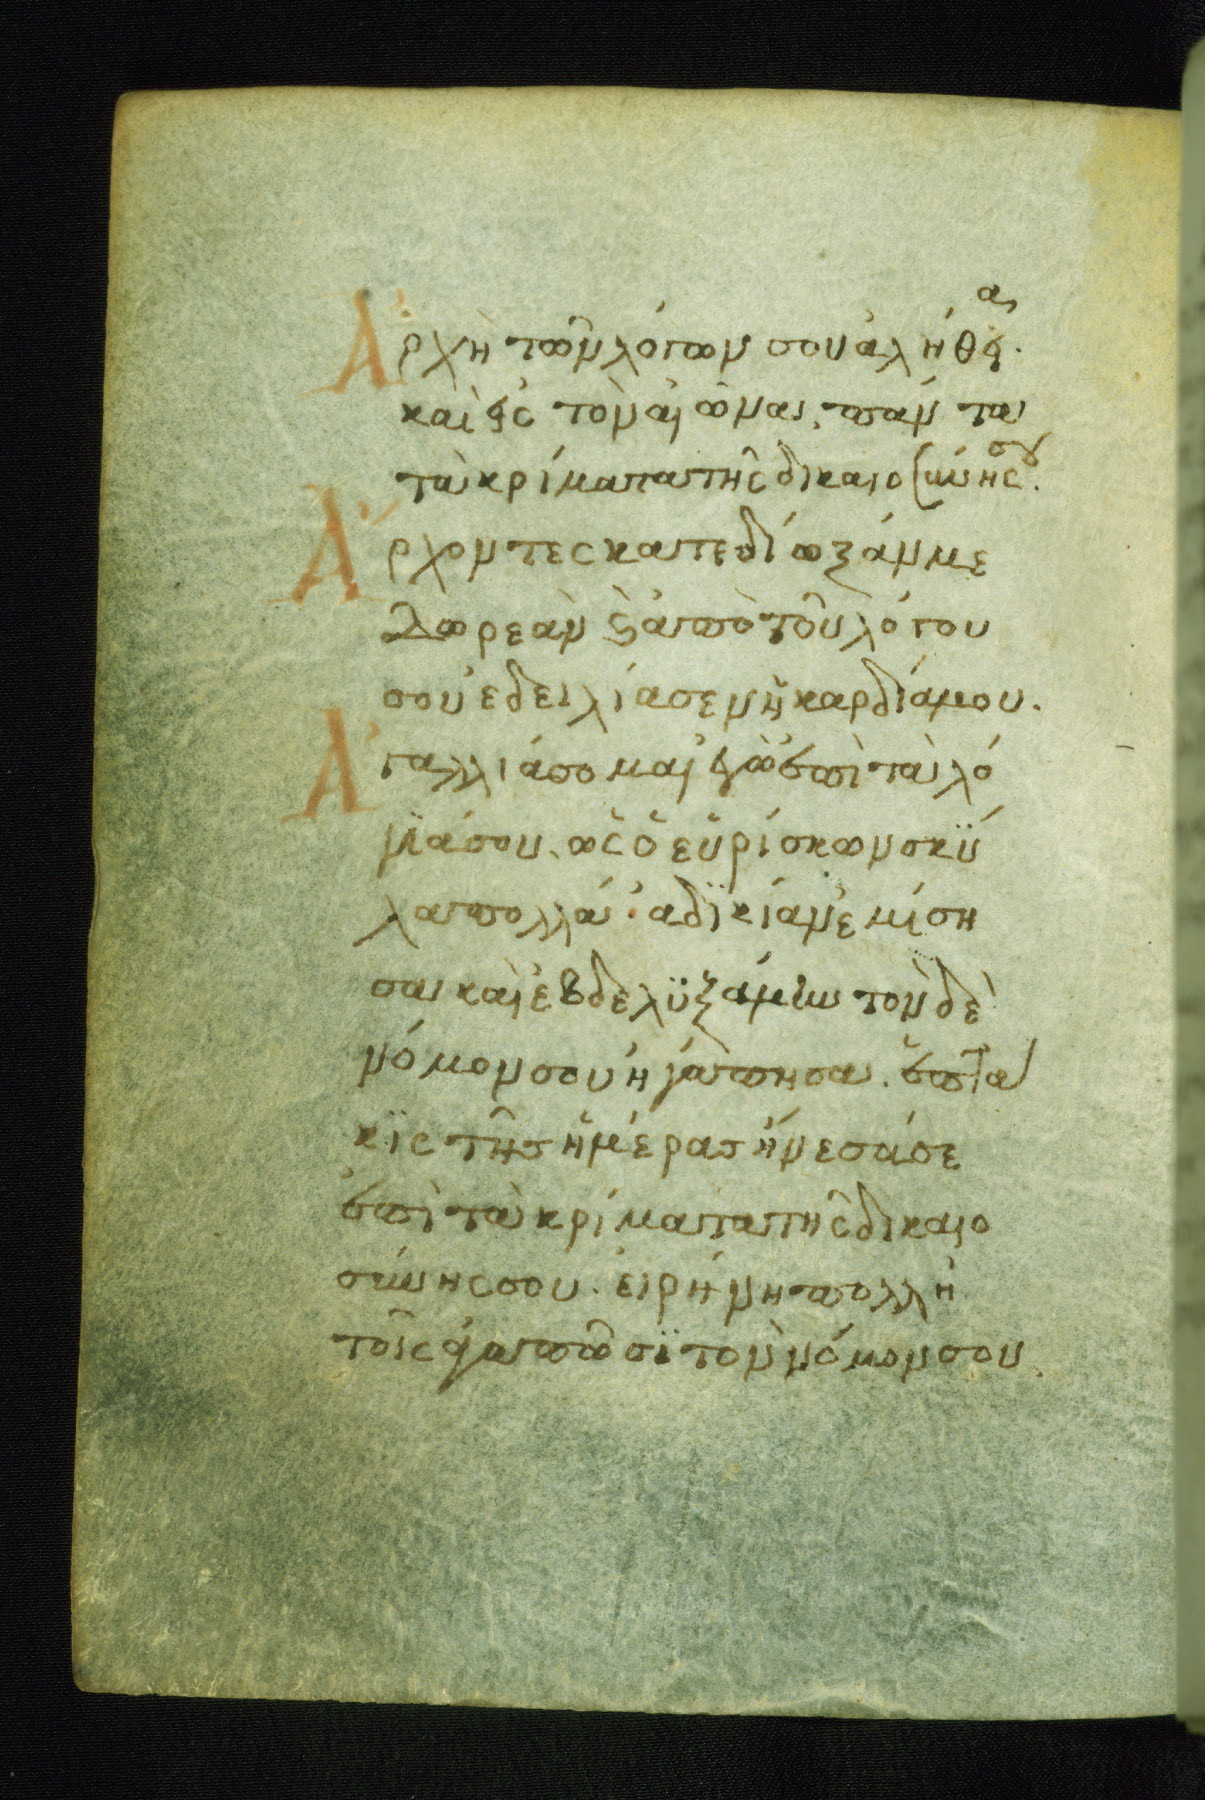 Ἀρχὴ τῶν λόγων σου ἀλήθει<sup>α</sup>.
καὶ εἰς τὸν αἰῶνα, πάντα
τὰ κρίματα τῆς δικαιοσύνης σου.
Ἄρχοντες κατεδίωξάν με
δωρεὰν ϗ ἀπὸ τοῦ λόγου
σου ἐδειλίασεν ἡ καρδία μου.
Ἀγαλλιάσομαι ἐγὼ ἐπὶ τὰ λό
γϊά σου, ὡς ὁ εὑρίσκων σκῦ
λα πολλά· ἀδϊκίαν ἐμίση
σα καὶ ἐβδελϋξάμην τὸν δὲ
νόμον σου ἠγάπησα. ἑπτά
κϊς τῆς ἡμέρας ἤνεσά σε
ἐπὶ τὰ κρίματα τῆς δικαιο
σύνης σου. εἰρήνη πολλὴ
τοῖς ἀγαπῶσϊ τὸν νόμον σου